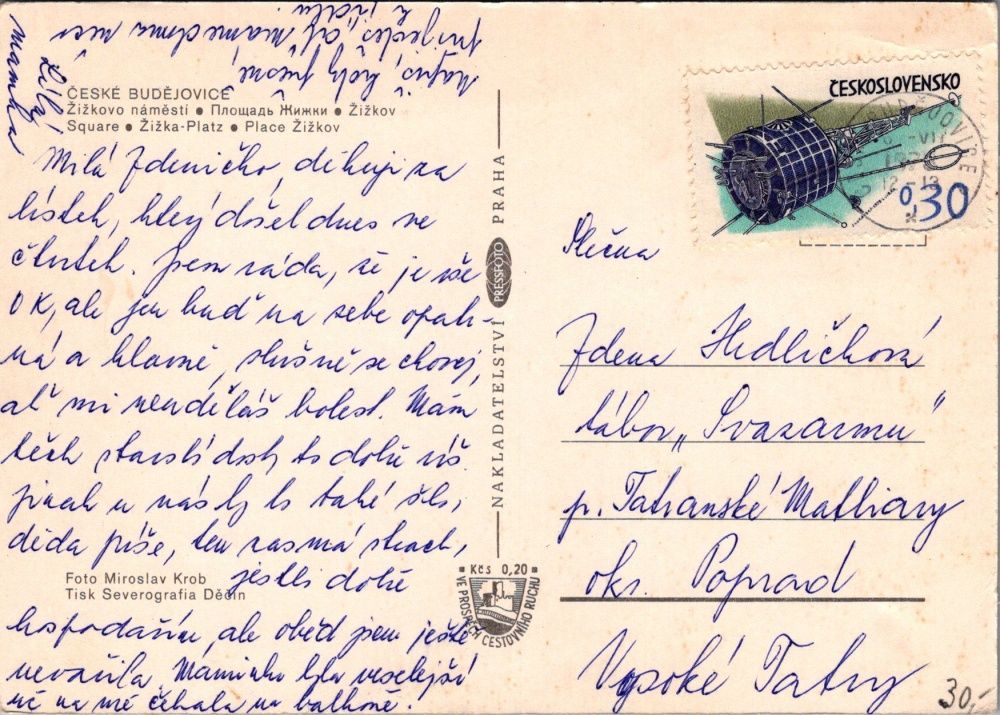 ČESKÉ BUDĚJOVICE
Žižkovo náměstí • Площадь Жижки • Žižkov
Square • Žižka-Platz • Place Žižkov
Milá Zdeničko, děkuji za
lístek, který došel dnes ve
čtvrtek. Jsem ráda, že je vše
OK, ale jen buď na sebe opatr-
ná a hlavně, slušně se chovej,
ať mi neuděláš bolest. Mám
těch starostí dost to dobře víš.
Jinak u nás by to také šlo,
děda píše, ten zas má strach,
jestli dobře
Foto Miroslav Krob
Tisk Severografia Děčín
hospodařím, ale oběd jsem ještě
nevařila. Maminka byla veselejší
už na mě čekala na balkoně.
Líbá
mamka
NAKLADATELSTVÍ PRESSFOTO PRAHA
Kčs 0,20
VE PROSPĚCH CESTOVNÍHO RUCHU
ČESKOSLOVENSKO
0,30
Slečna
Zdena Hrdličková
tábor „Svazarmu"
p. Tatranské Matliary
okr. Poprad
Vysoké Tatry
30,-